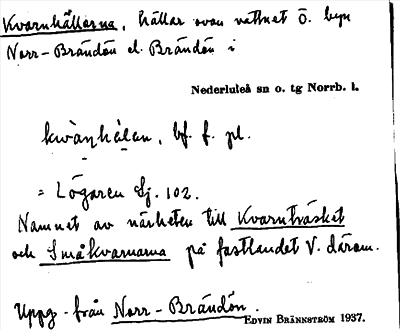 Kvarnhällarna, hällar ovan vattnet Ö. byn
Norr-Brändön el. Brändön i
Nederluleå sn o. tg Norrb. l.
kwàṇhẹlạn, bf. f. pl.
= Lögaren Sj. 102.
Namnet av närheten till Kvarnträsket
och Småkvarnarna på fastlandet V. därom.
Uppg. från Norr-Brändön.
Edvin Brännström 1937.